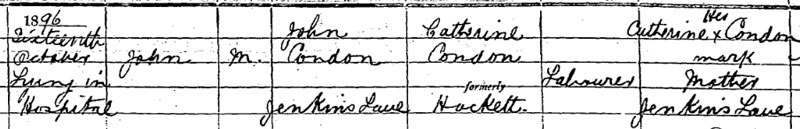 1896 John Catherine Her
Sixteenth Catherine x Condon
October John M. Condon Condon mark
Lying in formerly Labourer Mother
Hospital Jenkins Lane Hackett. Jenkins Lane